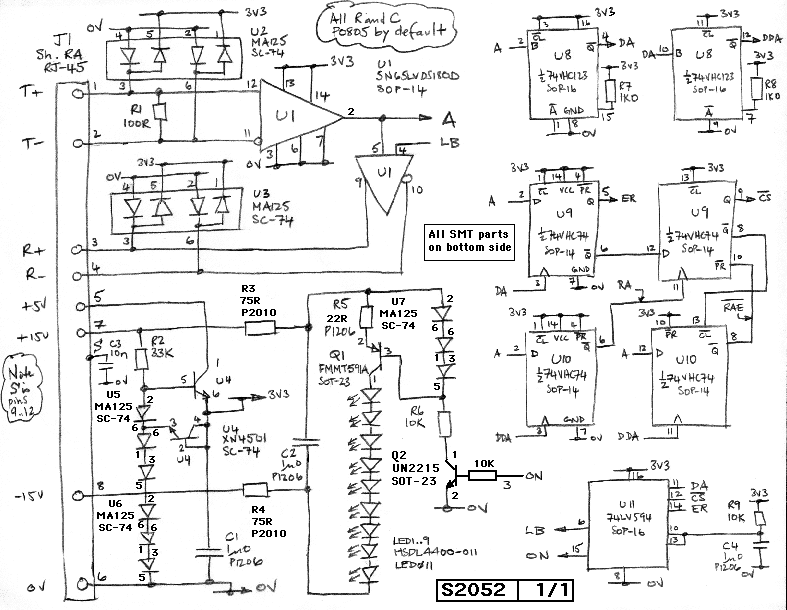 All R and C
P0805 by default
J1
Sh. RA
RJ-45
0V
3V3
U2
MA125
SC-74
4 5 2 1
3 6
T+
1
R1
100R
T-
2
12
11
U1
13
14
3V3
2
3 6 7
0V
U1
SN65LVDS180D
SOP-14
A
LB
5 4
U1
9
10
3V3
0V
4 5 2 1
U3
MA125
SC-74
3 6
R+
3
R-
4
+5V
5
+15V
7
S
C3
10n
0V
R2
33K
Note
S is
pins
9..12
U5
MA125
SC-74
2
6 6
1 3
5
5
1
6
U4
3V3
3
4
2
U4
XN4501
SC-74
U4
-15V
8
U6
MA125
SC-74
2
6 6
1 3
5
C1
1n0
P1206
0V
6
0V
R3
75R
P2010
R4
75R
P2010
C2
1n0
P1206
R5
22R
P1206
U7
MA125
SC-74
2
6 6
1 3
5
Q1
FMMT591A
SOT-23
1
2
3
R6
10K
Q2
UN2215
SOT-23
1
2
10K
3
ON
0V
LED1..9
HSDL4400-011
LED011
All SMT parts
on bottom side
3V3
3 16
A
2
B
CL
Q
4
DA
U8
½74VHC123
SOP-16
R7
1K0
15
A GND
1 8
0V
3V3
11
DA
10
B
CL
Q
12
DDA
U8
½74VHC123
SOP-16
R8
1K0
7
A
9
0V
3V3
1 14 4
CL VCC PR
A
2
D
Q
5
ER
U9
½74VHC74
SOP-14
Q
6
GND
DA
3
7
0V
3V3
13
CL
Q
9
CS
U9
½74VHC74
SOP-14
Q
8
PR
10
12
D
11
RA
RAE
3V3
1 14
CL VCC PR
A
2
D
U10
½74VHC74
SOP-14
Q
6
GND
DDA
3
7
0V
3V3
10
PR
13
CL
A
12
D
Q
8
U10
½74VHC74
SOP-14
DDA
11
3V3
16
U11
74LV594
SOP-16
11
DA
12
CS
14
ER
10
13
LB
6
ON
15
8
0V
3V3
R9
10K
C4
1n0
P1206
0V
S2052 1/1